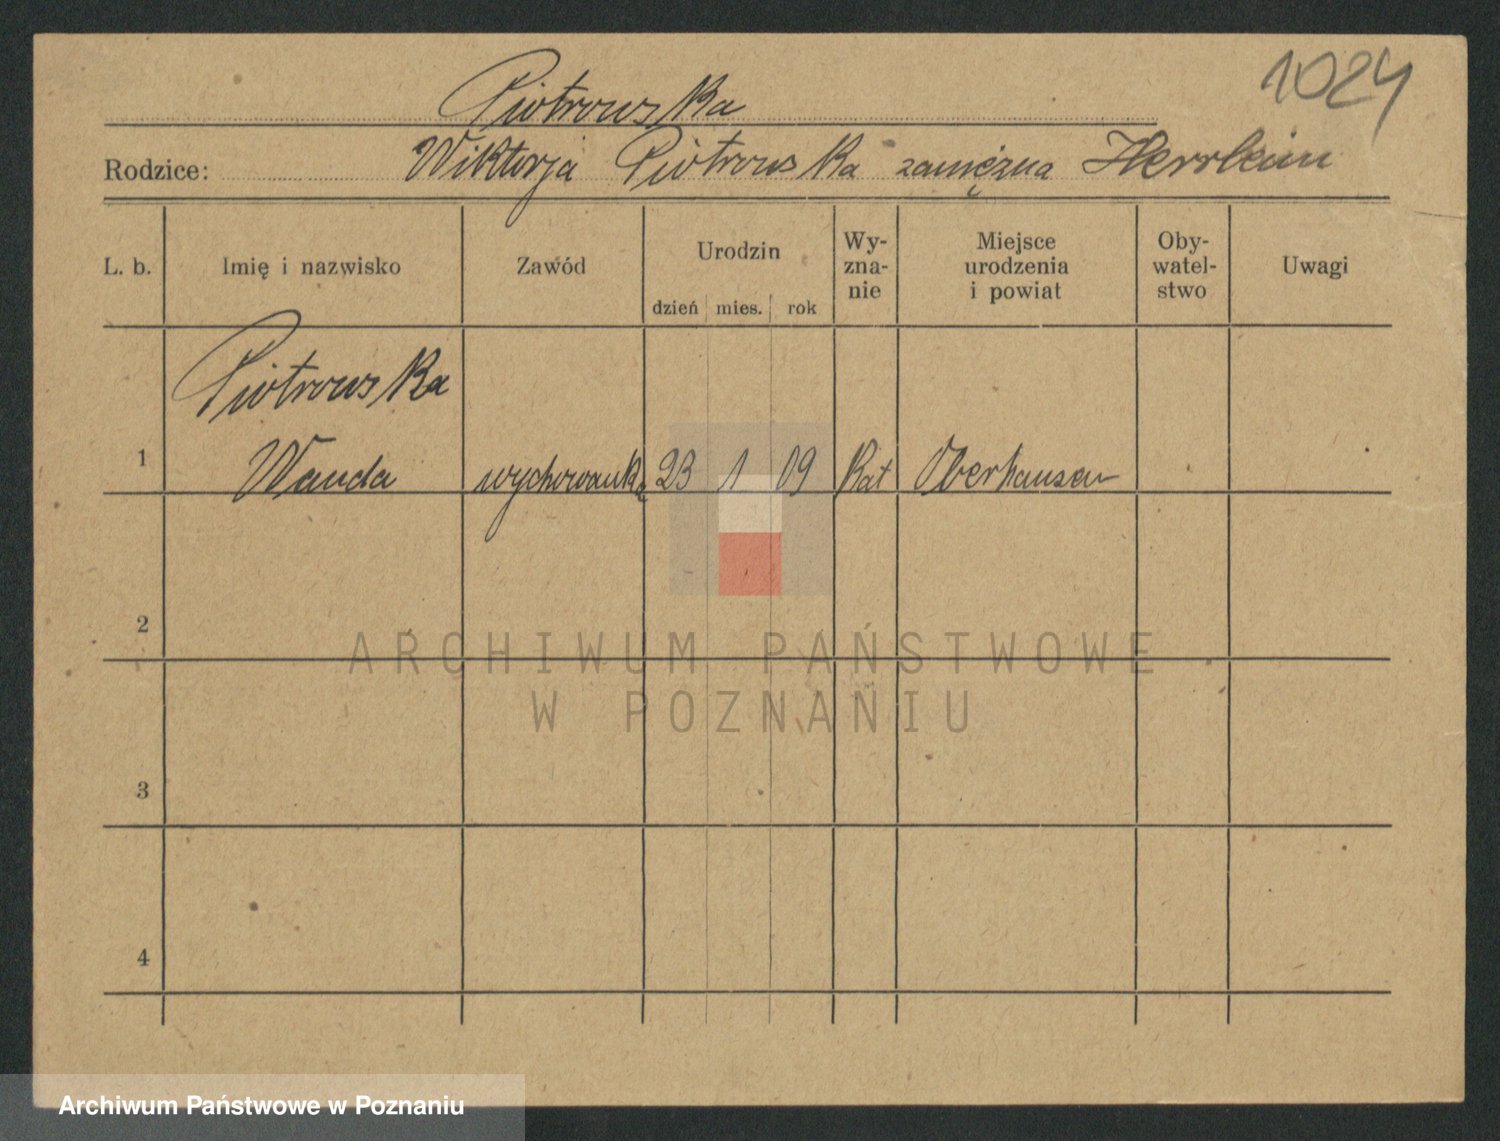 1024
Piotrowska
Rodzice: Wiktorja Piotrowska zamężna Herrlein
L. b. Imię i nazwisko Zawód Urodzin Wy-zna-nie Miejsce urodzenia i powiat Oby-watel-stwo Uwagi
dzień mies. rok
Piotrowska
1 Wanda wychowanka 23 1 09 Kat Oberhausen
2
ARCHIWUM PAŃSTWOWE
W POZNANIU
3
4
Archiwum Państwowe w Poznaniu